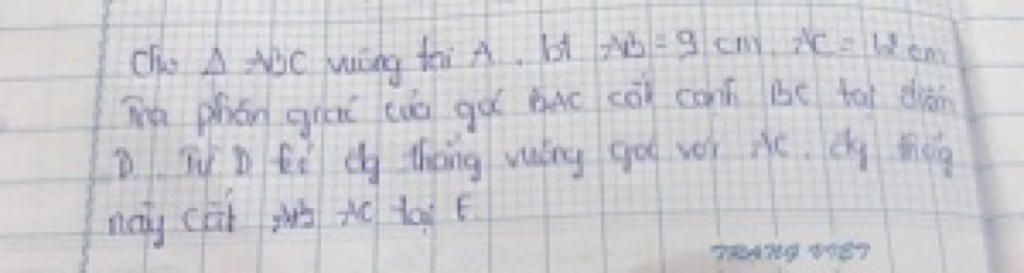 Cho Δ ABC vuông tại A. bt AB = 9 cm. AC = 12 cm
Tia phân giác của góc BAC cắt cạnh BC tại điểm
D. Từ D kẻ đg thẳng vuông góc với AC. đg thẳng
này cắt AC tại E.
TRANG VIET